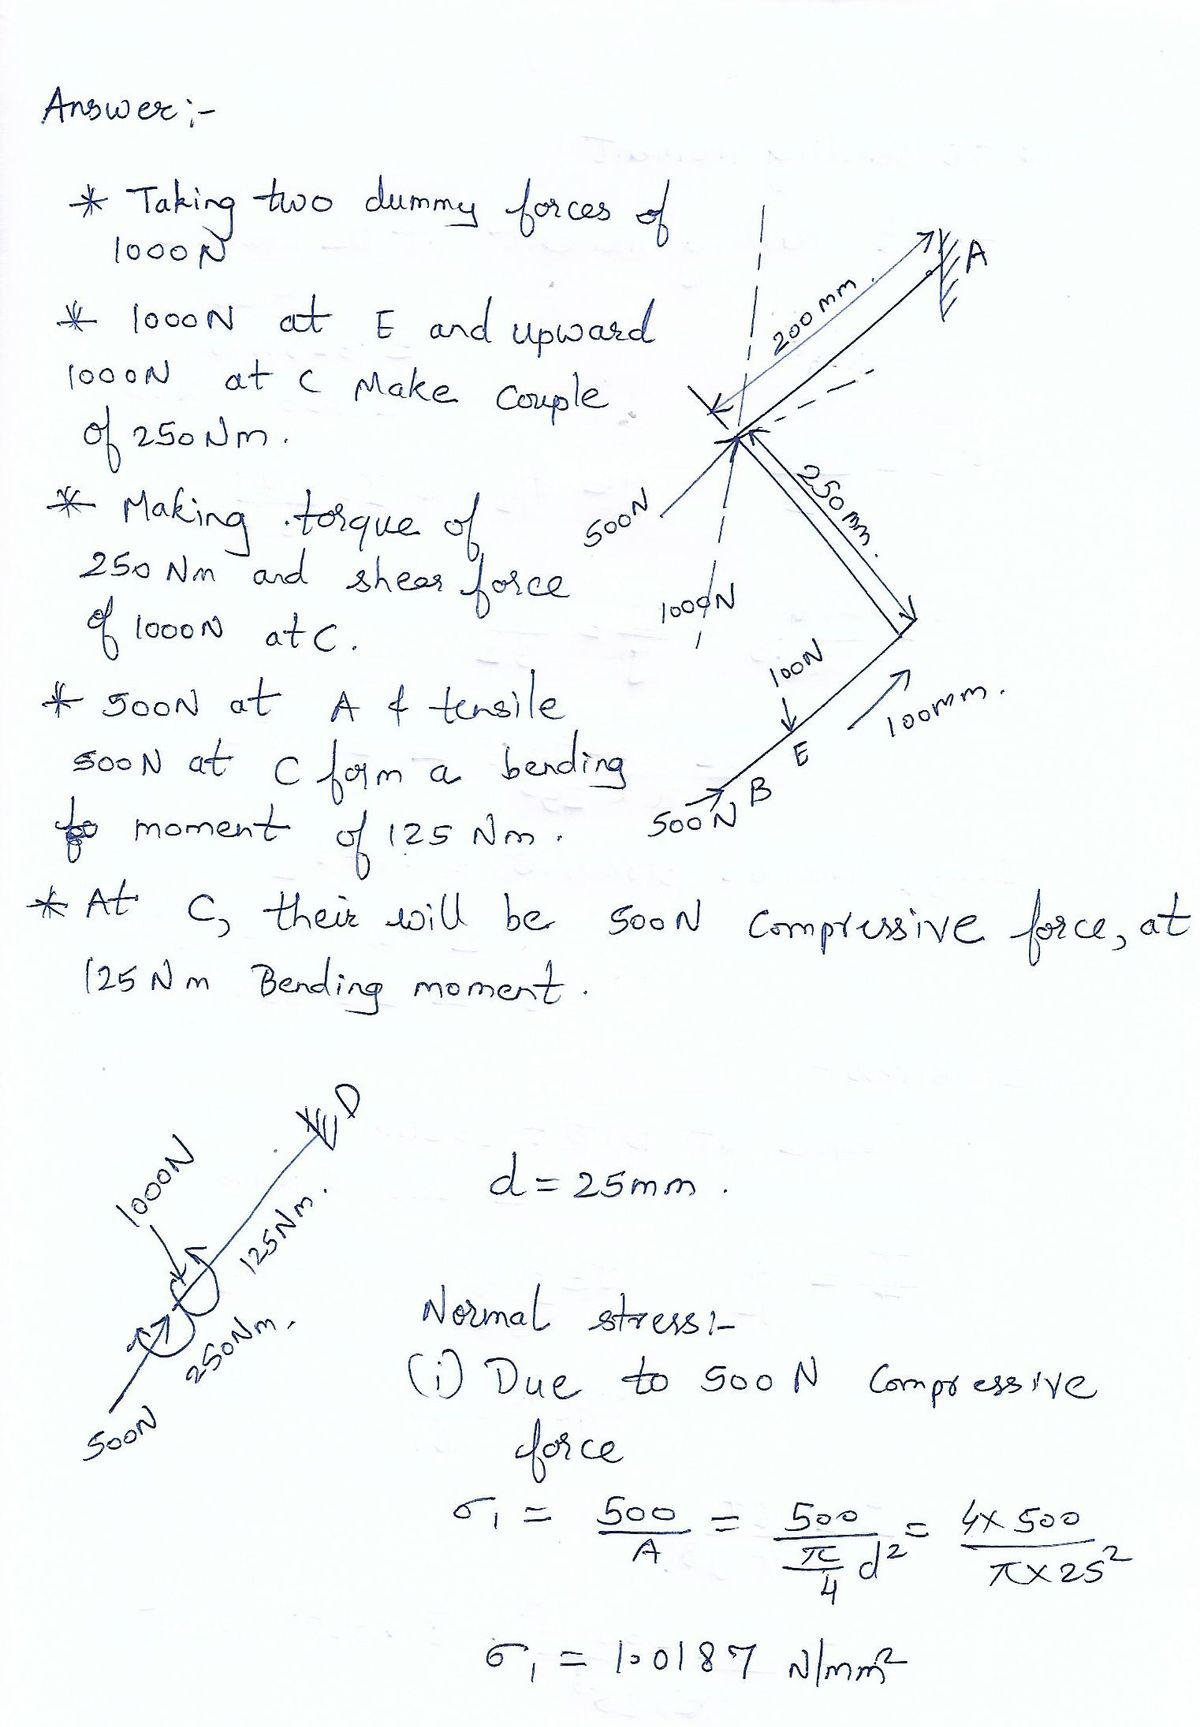 Answer:-
* Taking two dummy forces of
1000N
* 1000N at E and upward
1000N at C Make Couple
of 250 Nm.
* Making torque of
250 Nm and shear force
of 1000N at C.
* 500N at A & tensile
500N at C form a bending
moment of 125 Nm.
* At C, their will be 500N Compressive force, at
125 Nm Bending moment.
A
200 mm.
500N
250 mm.
1000N
100N
100mm.
E
B
500N
D
1000N
125Nm.
250Nm.
500N
d = 25mm.
Normal stress:-
(i) Due to 500 N Compressive
force
σ1 = 500/A = 500/(π/4 d²) = 4×500/(π×25²)
σ1 = 1.0187 N/mm²